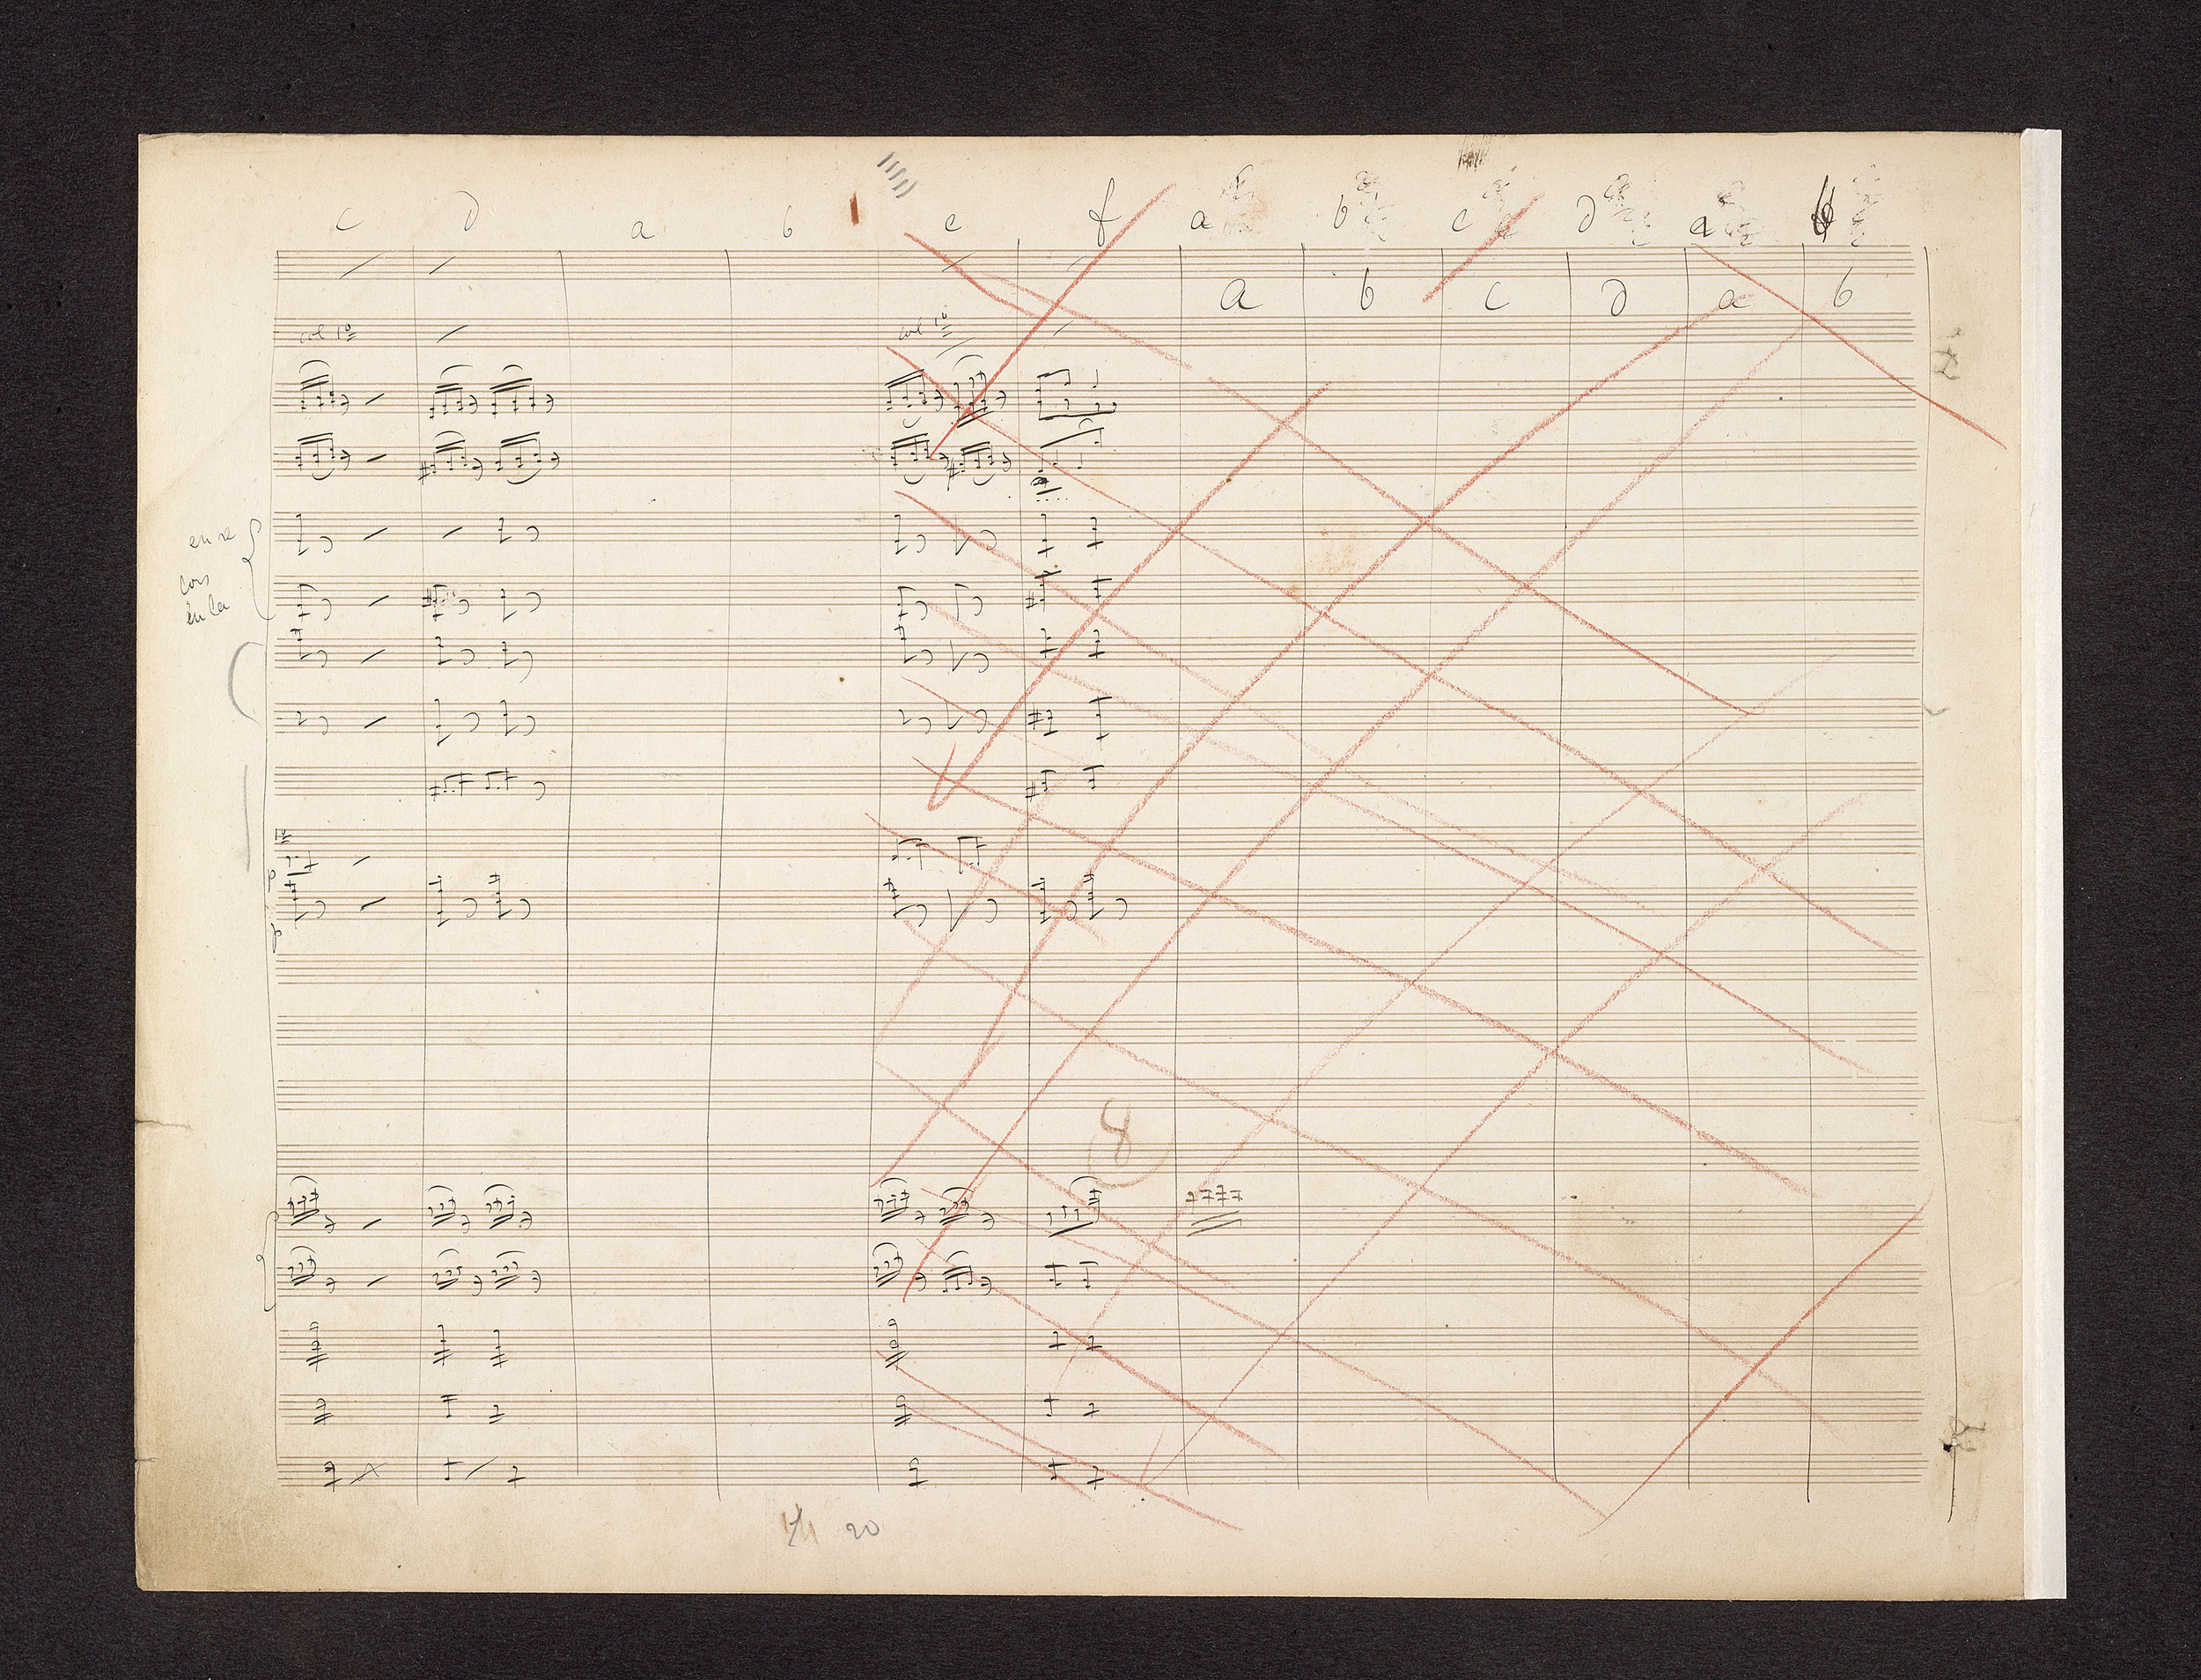 c d a b e f a b c d a b
a b c d a b
col 1º col 1º
en re
cors
en la
1º
p
p
8
20